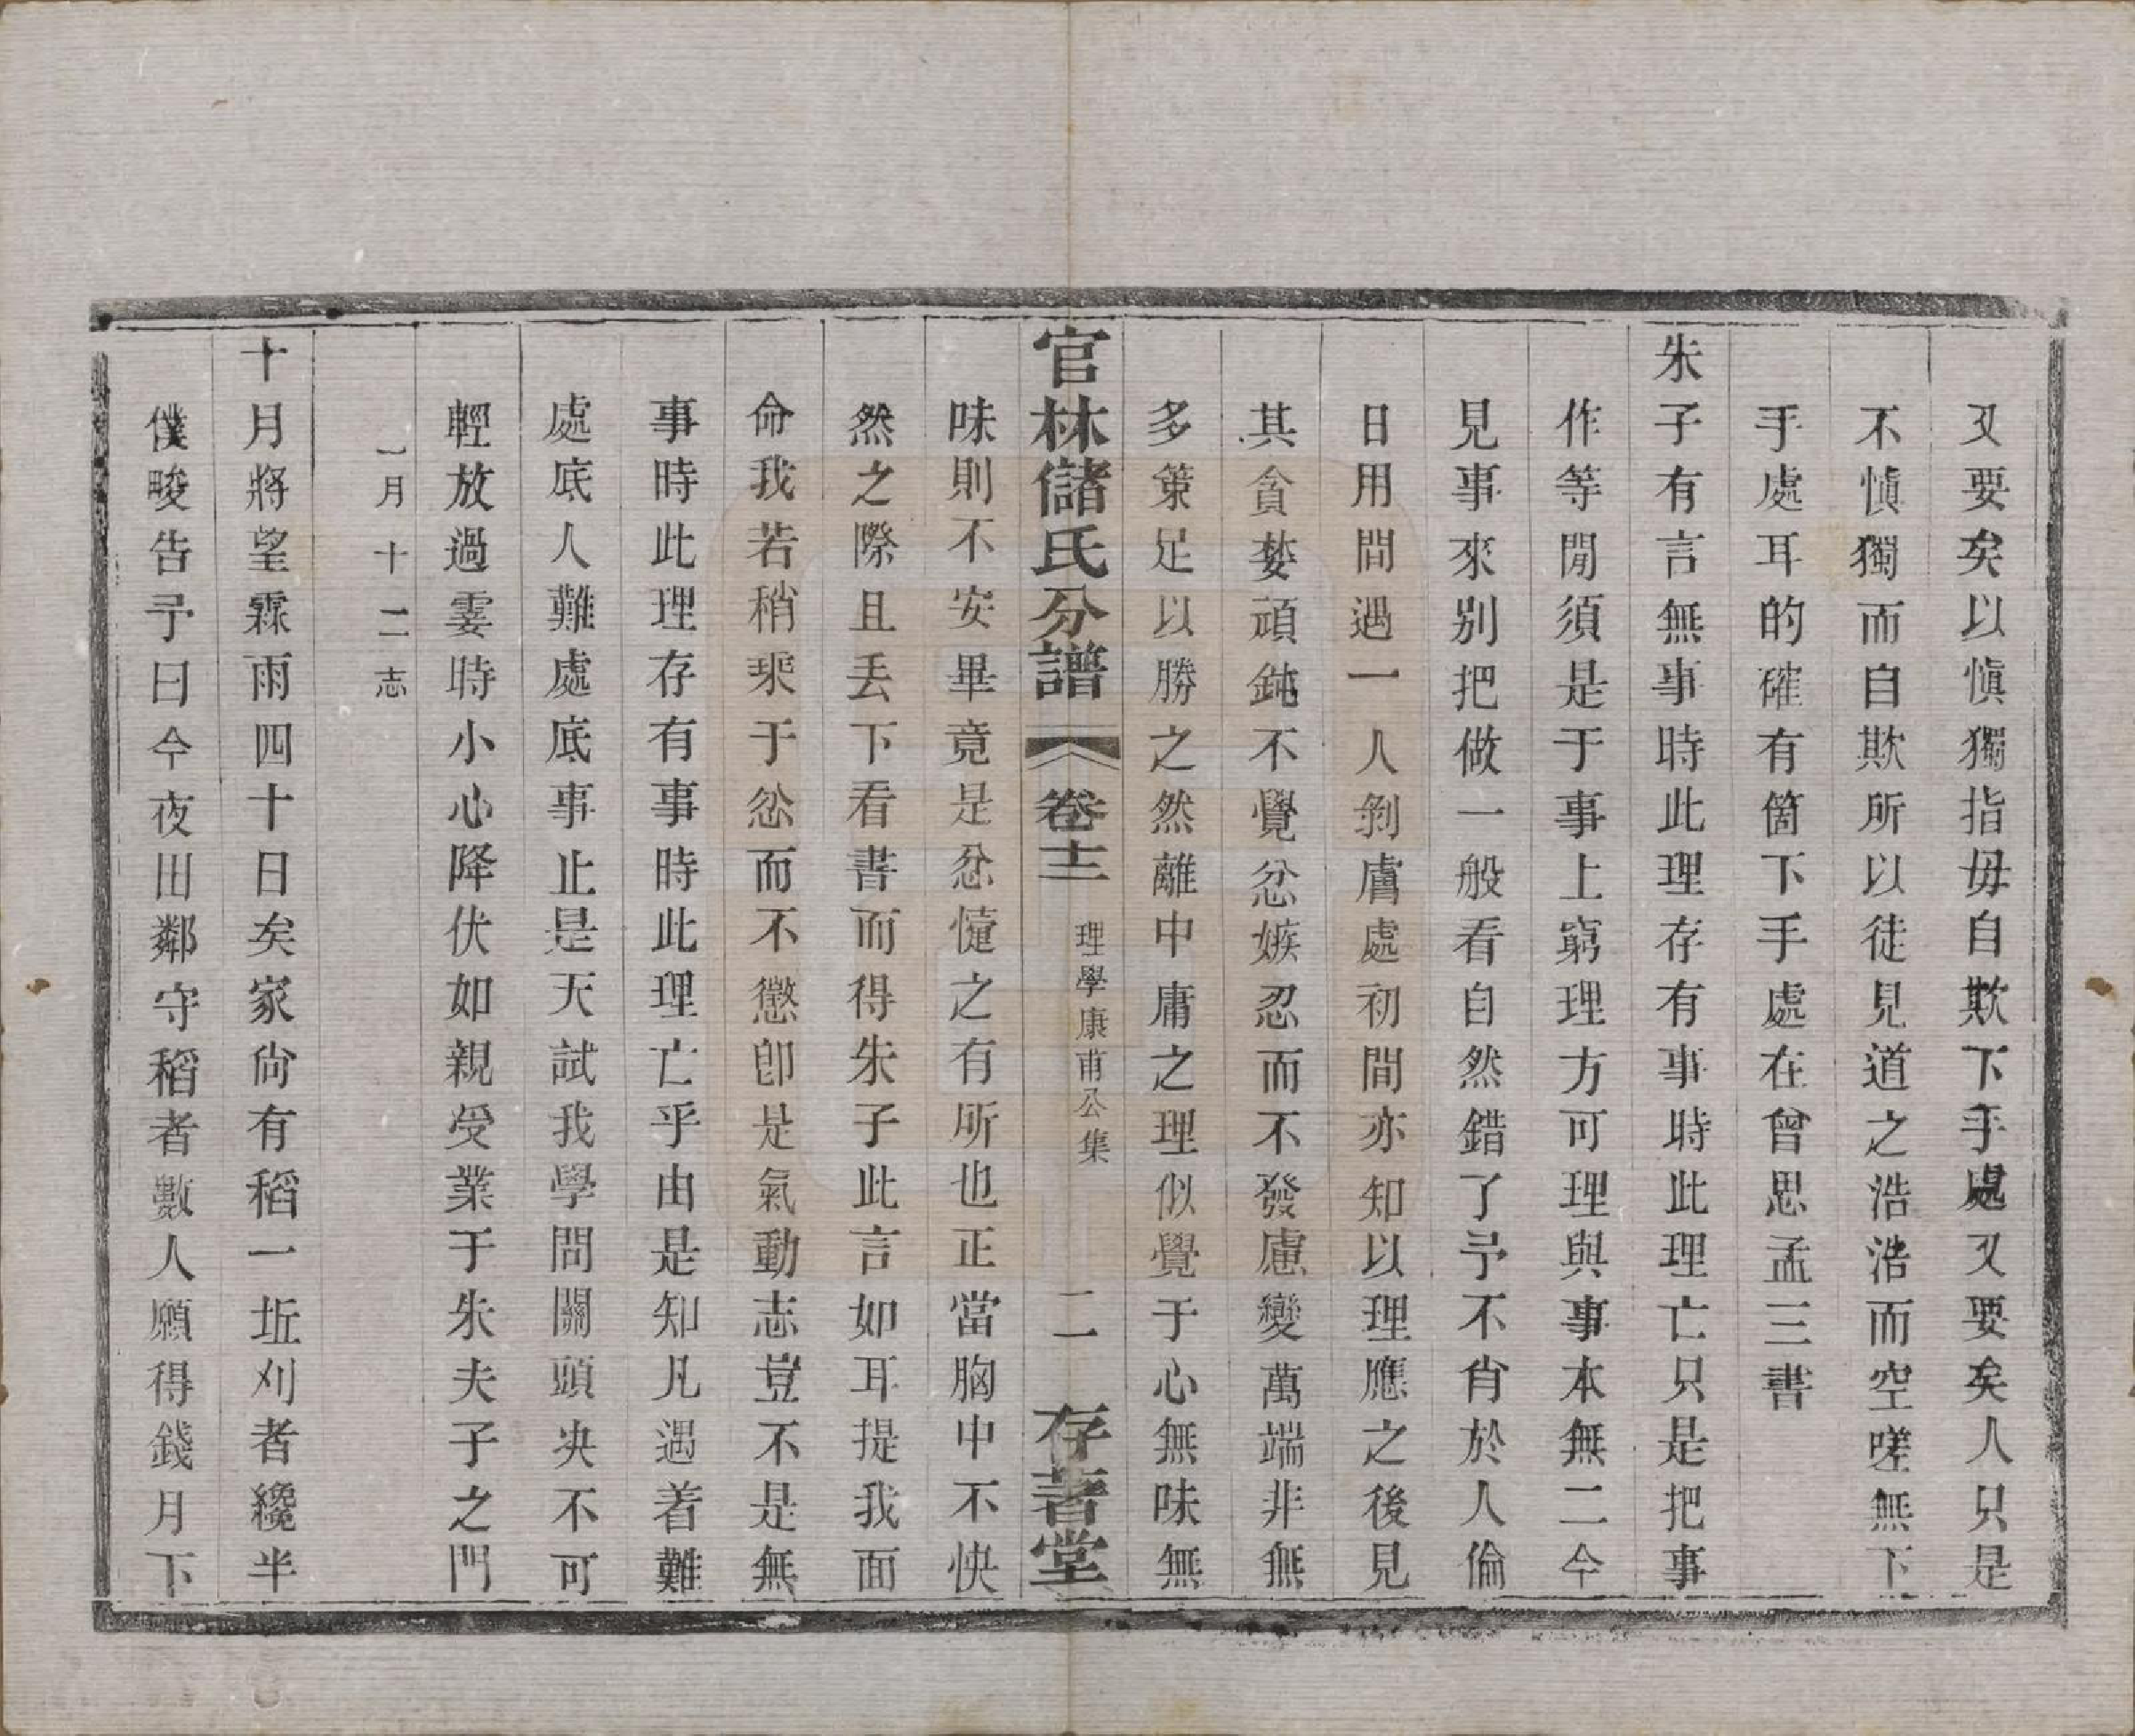 又要矣以愼獨指毋自欺下手處又要矣人只是
不愼獨而自欺所以徒見道之浩浩而空嗟無下
手處耳的確有箇下手處在曾思孟三書
朱子有言無事時此理存有事時此理亡只是把事
作等閒須是于事上窮理方可理與事本無二今
見事來別把做一般看自然錯了予不肖於人倫
日用間遇一人剝膚處初間亦知以理應之後見
其貪婪頑鈍不覺忿嫉忍而不發慮變萬端非無
多策足以勝之然離中庸之理似覺于心無味無
官林儲氏分譜
卷十二
理學康甫公集
二
存著堂
味則不安畢竟是忿懥之有所也正當胸中不快
然之際且丟下看書而得朱子此言如耳提我面
命我若稍乘于忿而不懲卽是氣動志豈不是無
事時此理存有事時此理亡乎由是知凡遇着難
處底人難處底事止是天試我學問關頭决不可
輕放過霎時小心降伏如親受業于朱夫子之門
一月十二志
十月將望霖雨四十日矣家尙有稻一坵刈者纔半
僕畯告予曰今夜田鄰守稻者數人願得錢月下